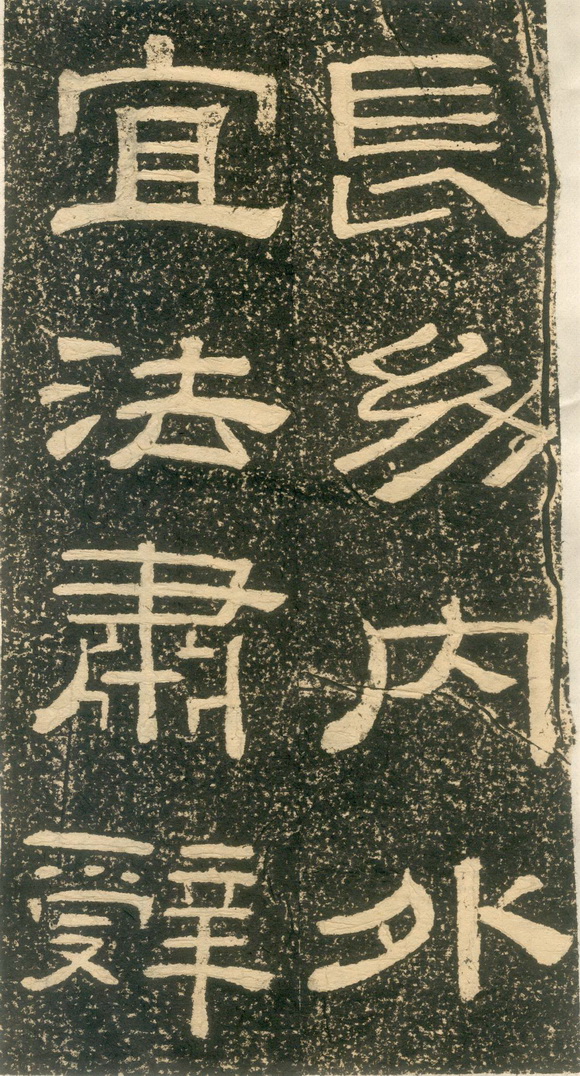 長幼内外
宜法肅辤